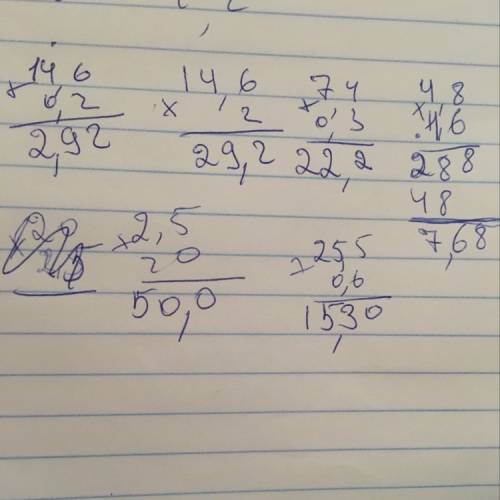 14,6 × 0,2 = 2,92
14,6 × 2 = 29,2
74 × 0,3 = 22,2
4,8 × 1,6
288
48
7,68
2,5 × 20 = 50,0
2,55 × 0,6 = 1,530